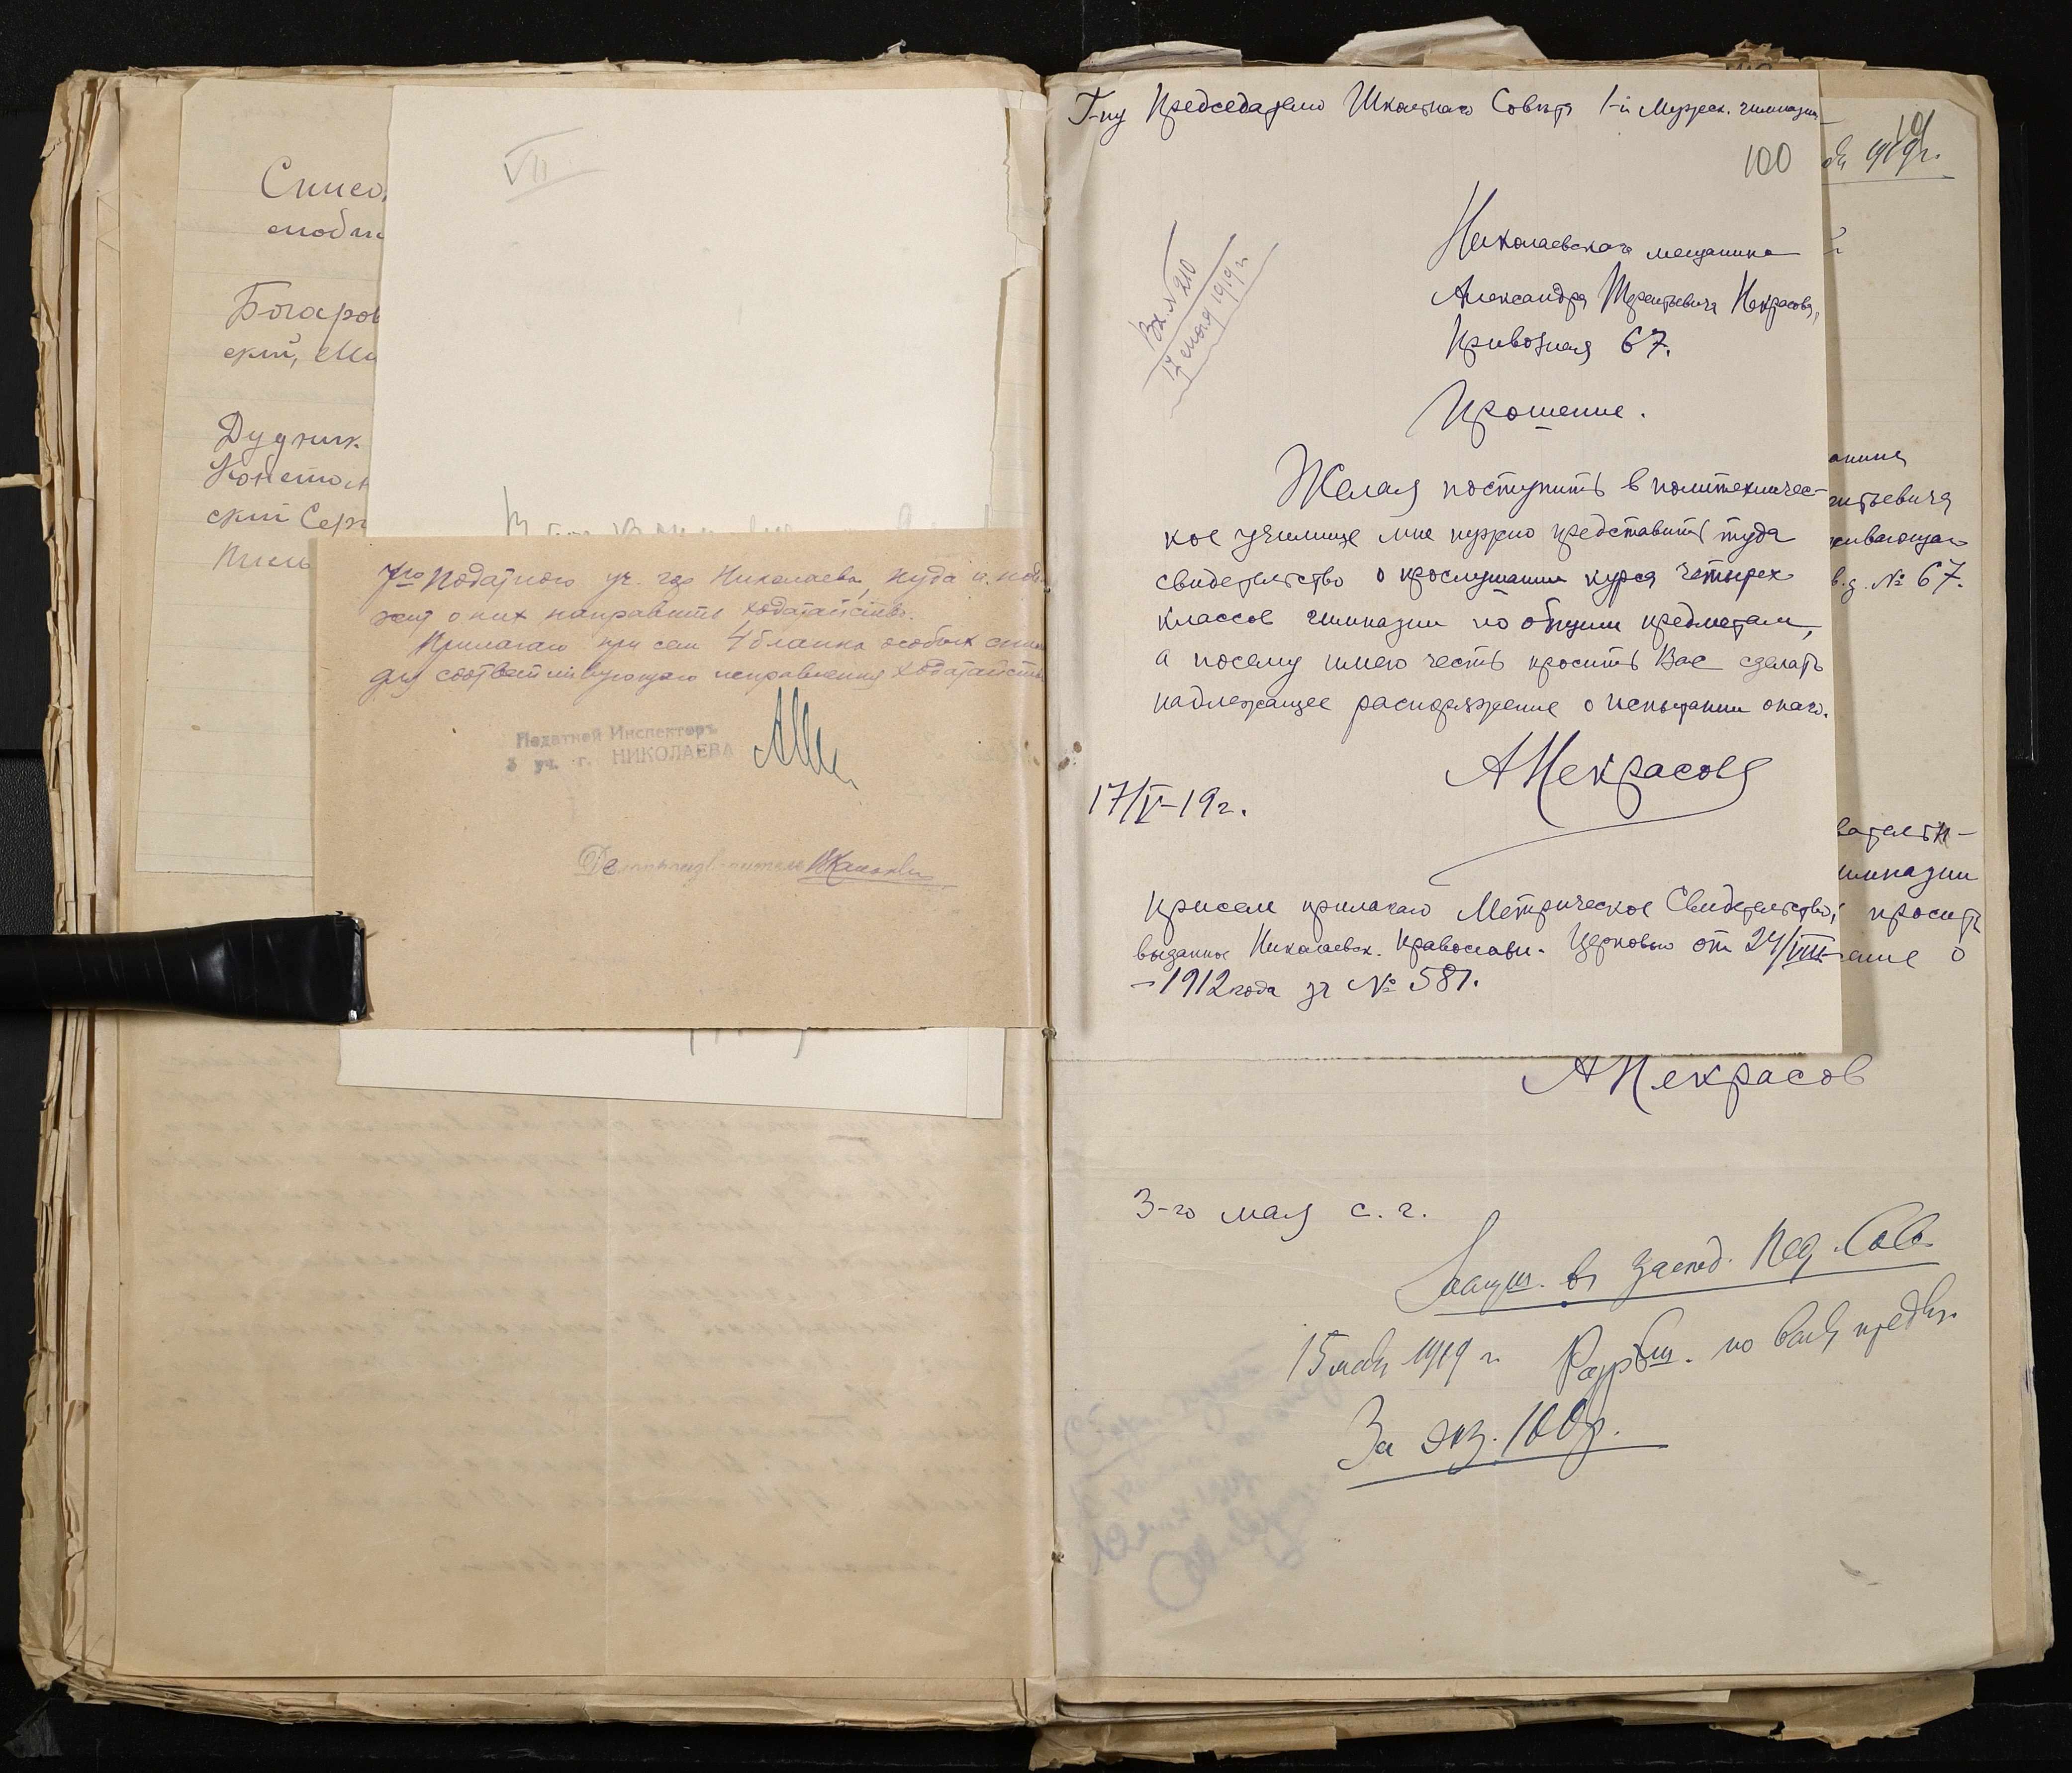 Списо
сподт
Богаров
ский, Ми
Дудник
Констан
ский Серг
VII
7го Податного уч. гор Николаева, куда и. под-
жит о них направить ходатайство.
Прилагаю при сем 4 бланка особых
для соответствующого исправления ходатайств
Податной Инспекторъ
3 уч. г. НИКОЛАЕВА
Делопроизводитель
Г-ну Председателю Школьнаго Совета 1-й Мужеск. гимназии
100
101
1919г.
Вх. № 210
17 мая 1919 г
Николаевскаго мещанина
Александра Терентьевича Некрасова,
Привозная 67.
Прошение.
Желая поступить в политехничес-
кое училище мне нужно представить туда
свидетельство о прослушании курса четырех
классов гимназии по общим предметам,
а посему имею честь просить Вас сделать
надлежащее распоряжение о испытании онаго.
АНекрасовъ
17/V-19г.
Присем прилагаю Метрическое Свидетельство,
выданное Николаевск. Православн. Церковью от 24/VIII
-1912 года за № 581.
анина
нтьевича
живающаго
в д. № 67.
имназии
просить
ение о
АНекрасов
3-го мая с. г.
Заслуш. въ засед. Пед. Сов.
15 мая 1919 г. Разрѣш. по всѣмъ предм.
За экз. 100р.